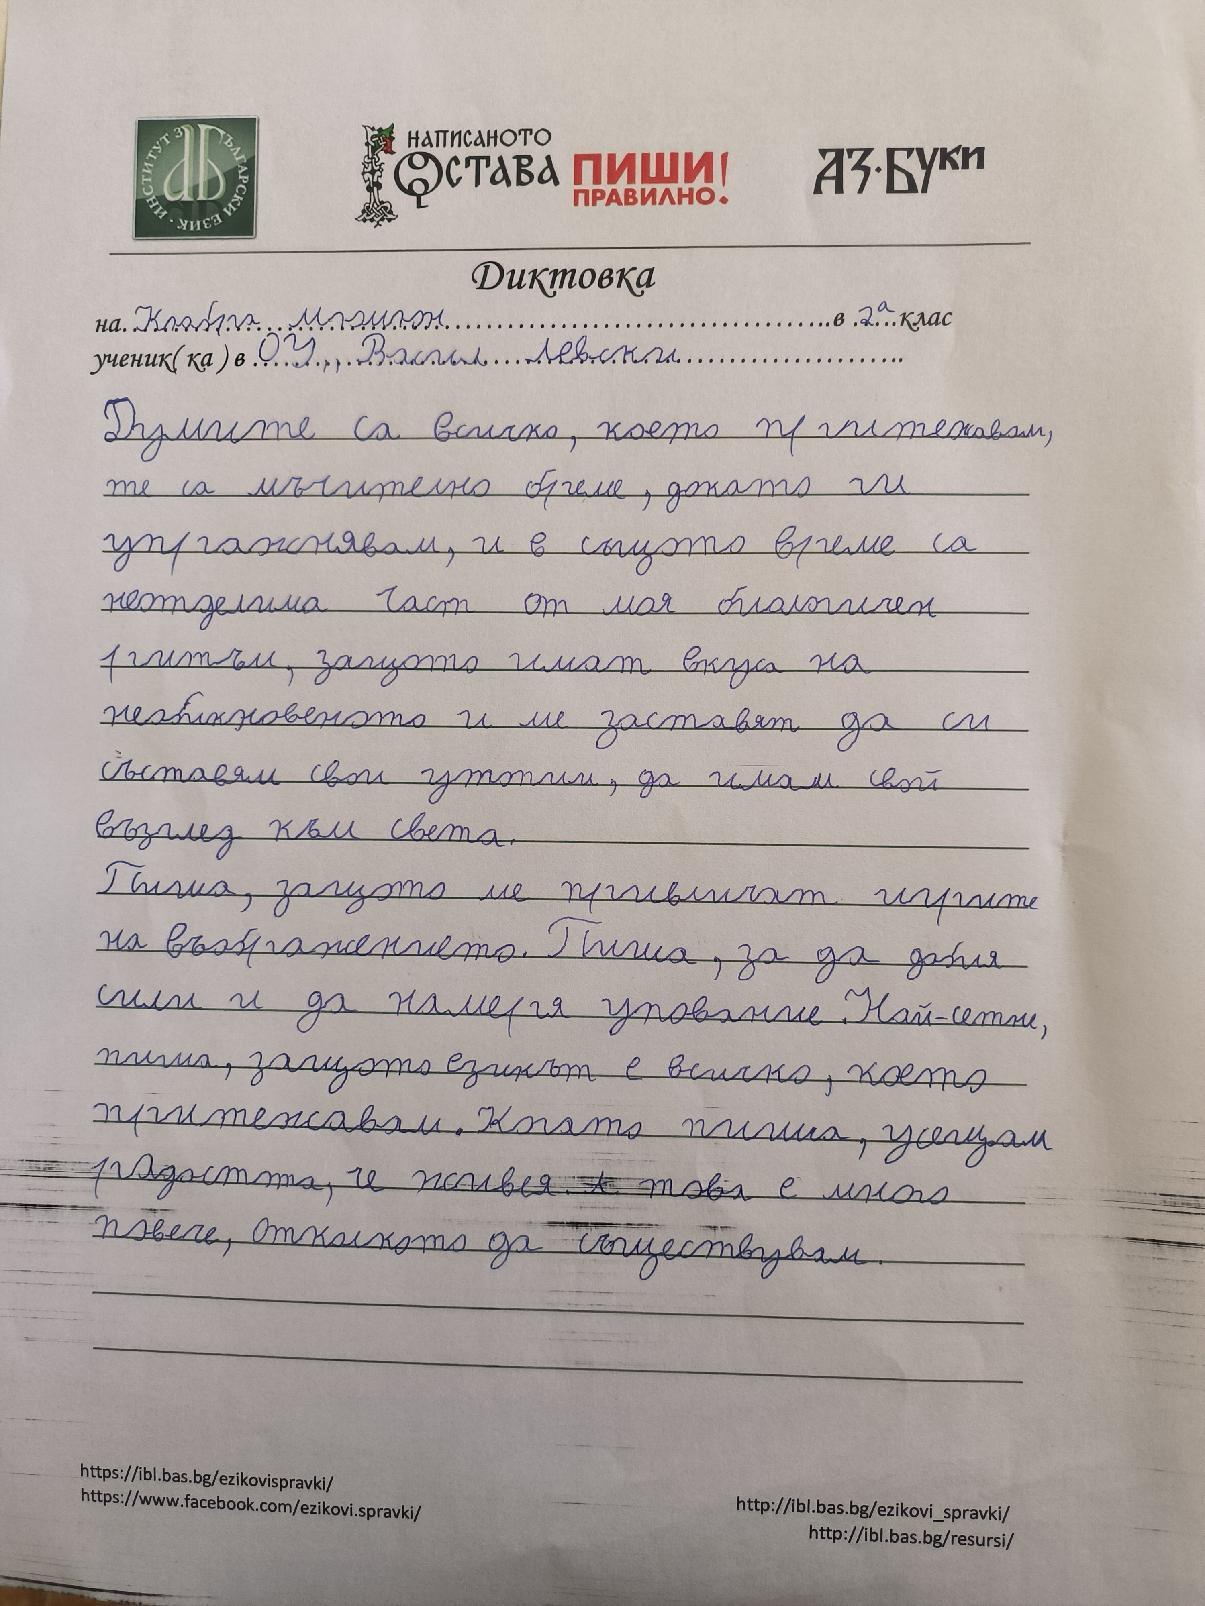 ИНСТИТУТ ЗА БЪЛГАРСКИ ЕЗИК
НАПИСАНОТО
ОСТАВА ПИШИ!
ПРАВИЛНО.
АЗ·БУКИ
Диктовка
на в 2а клас
ученик( ка ) в ОУ „ Васил Левски
Думите са всичко, което притежавам,
те са мъчително бреме, докато ги
упражнявам, и в същото време са
неотделима част от моя биологичен
ритъм, защото имат вкуса на
необикновеното и ме заставят да си
съставям свои утопии, да имам свой
възглед към света.
Пиша, защото ме привличат игрите
на въображението. Пиша, за да добия
сили и да намеря упование. Най-сетне,
пиша, защото езикът е всичко, което
притежавам. Когато пиша, усещам
радостта, че живея. А това е много
повече, отколкото да съществувам.
https://ibl.bas.bg/ezikovispravki/
https://www.facebook.com/ezikovi.spravki/
http://ibl.bas.bg/ezikovi_spravki/
http://ibl.bas.bg/resursi/